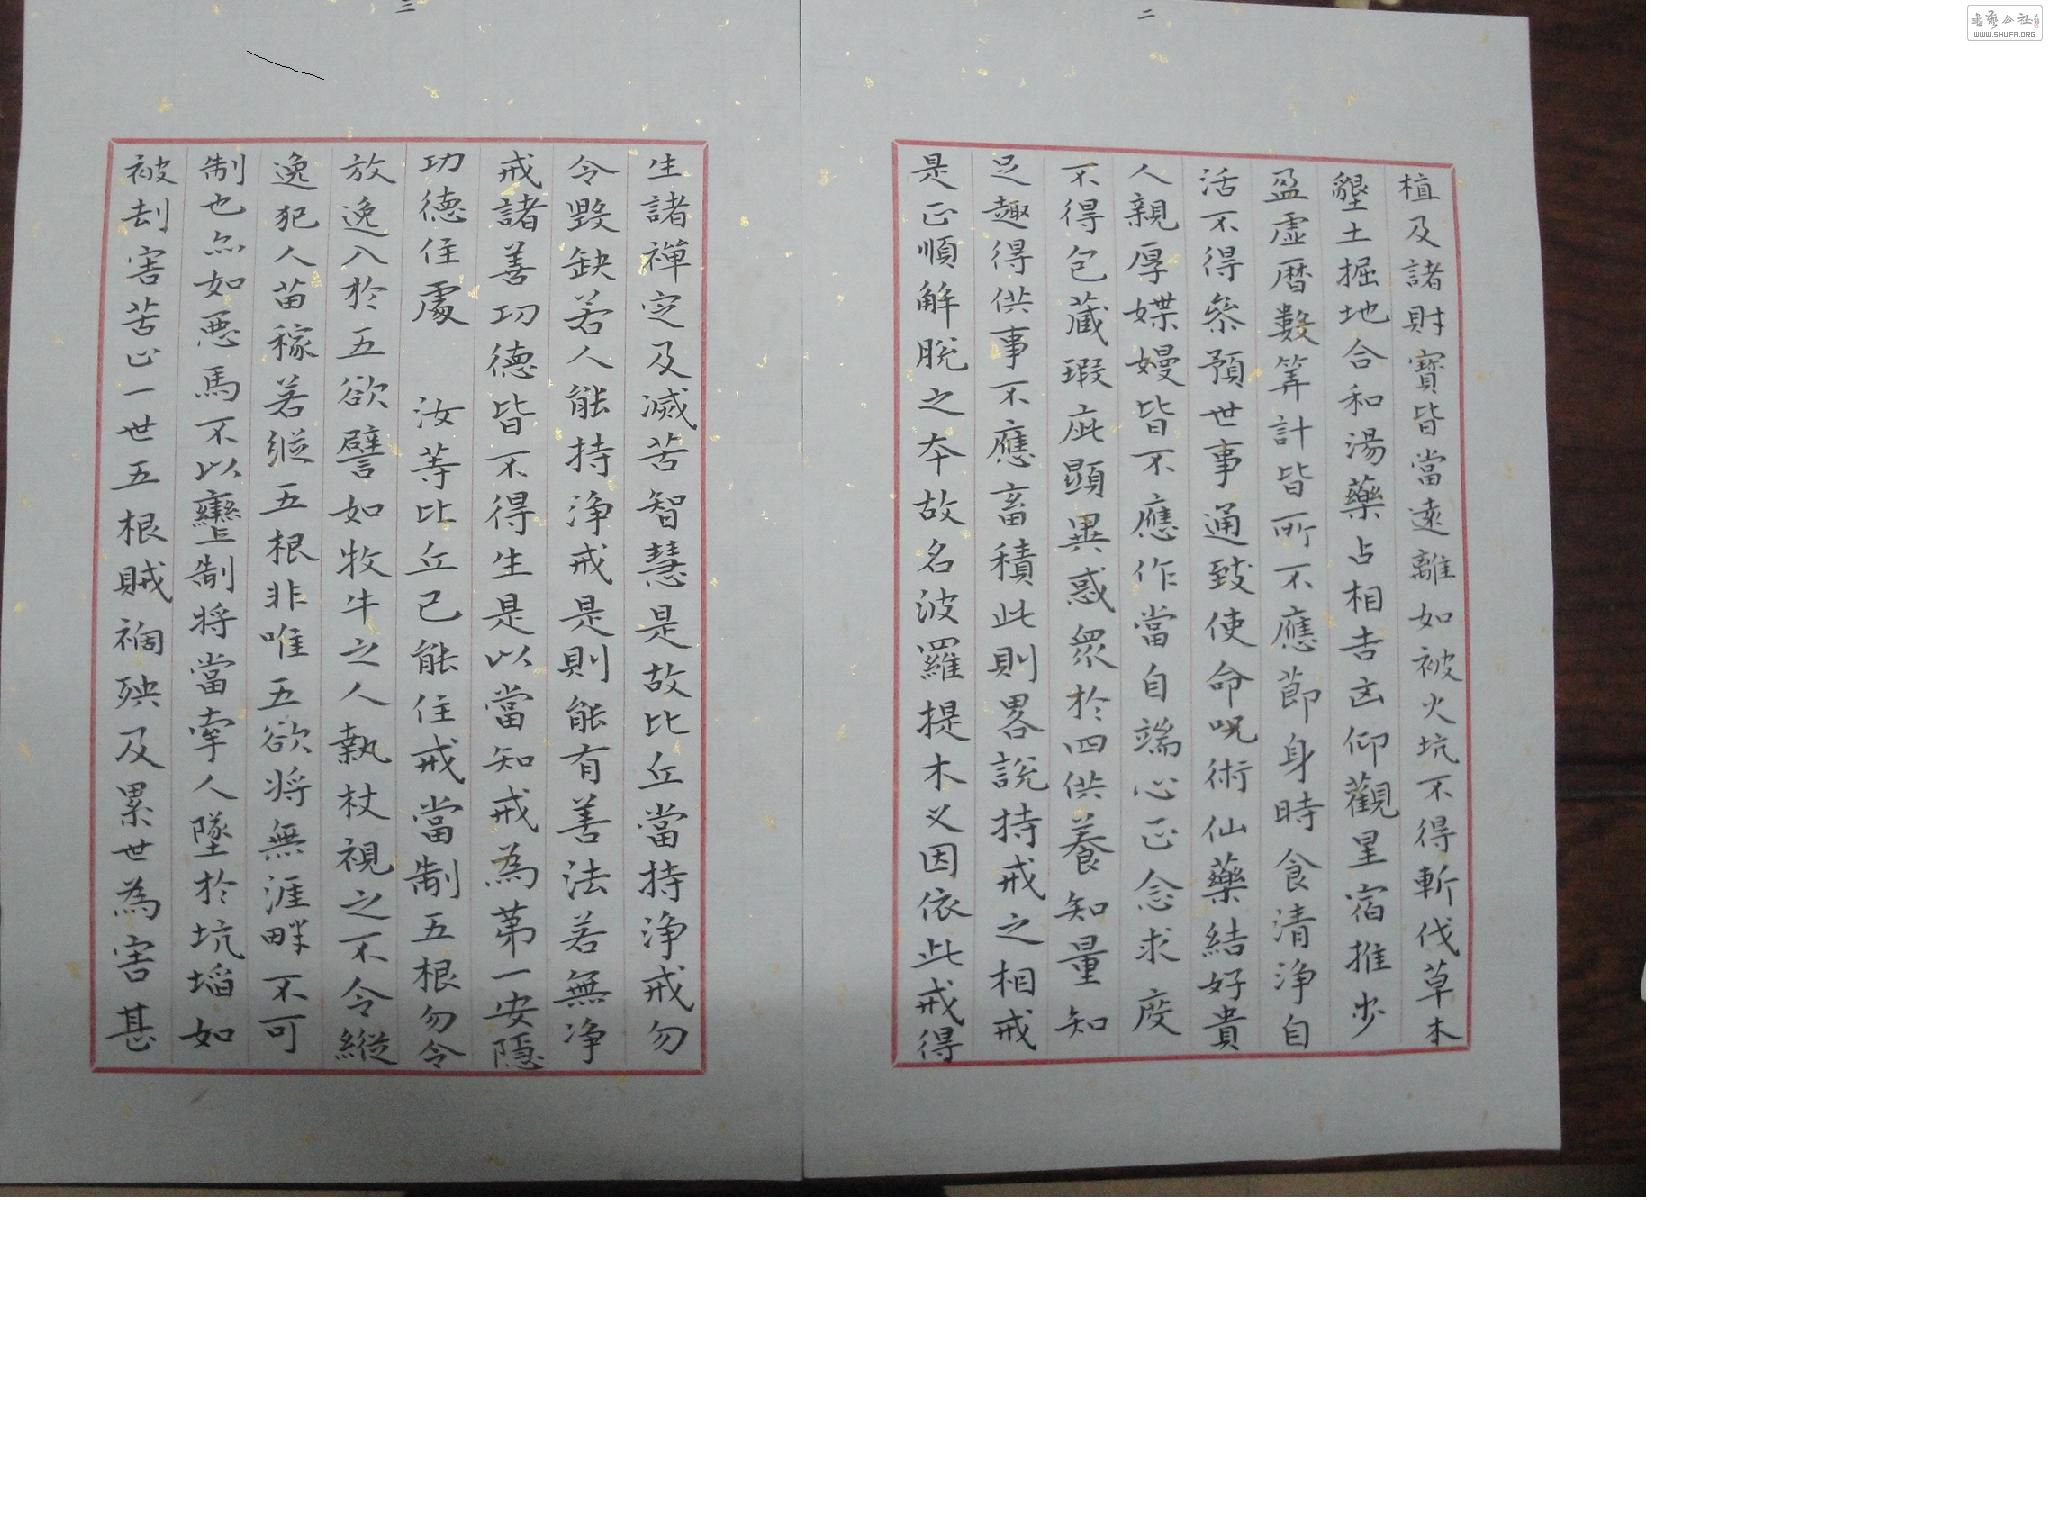 二
植及諸財寶皆當遠離如被火坑不得斬伐草木
墾土掘地合和湯藥占相吉凶仰觀星宿推步
盈虛曆數筭計皆所不應節身時食清淨自
活不得叅預世事通致使命呪術仙藥結好貴
人親厚媟嫚皆不應作當自端心正念求度
不得包藏瑕疵顯異惑眾於四供養知量知
足趣得供事不應畜積此則畧說持戒之相戒
是正順解脫之本故名波羅提木叉因依此戒得
三
生諸禪定及滅苦智慧是故比丘當持淨戒勿
令毀缺若人能持淨戒是則能有善法若無淨
戒諸善功德皆不得生是以當知戒為第一安隱
功德住處 汝等比丘已能住戒當制五根勿令
放逸入於五欲譬如牧牛之人執杖視之不令縱
逸犯人苗稼若縱五根非唯五欲将無涯畔不可
制也亦如惡馬不以轡制将當牽人墜於坑埳如
被刦害苦止一世五根賊禍殃及累世為害甚
書藝公社
WWW.SHUFA.ORG